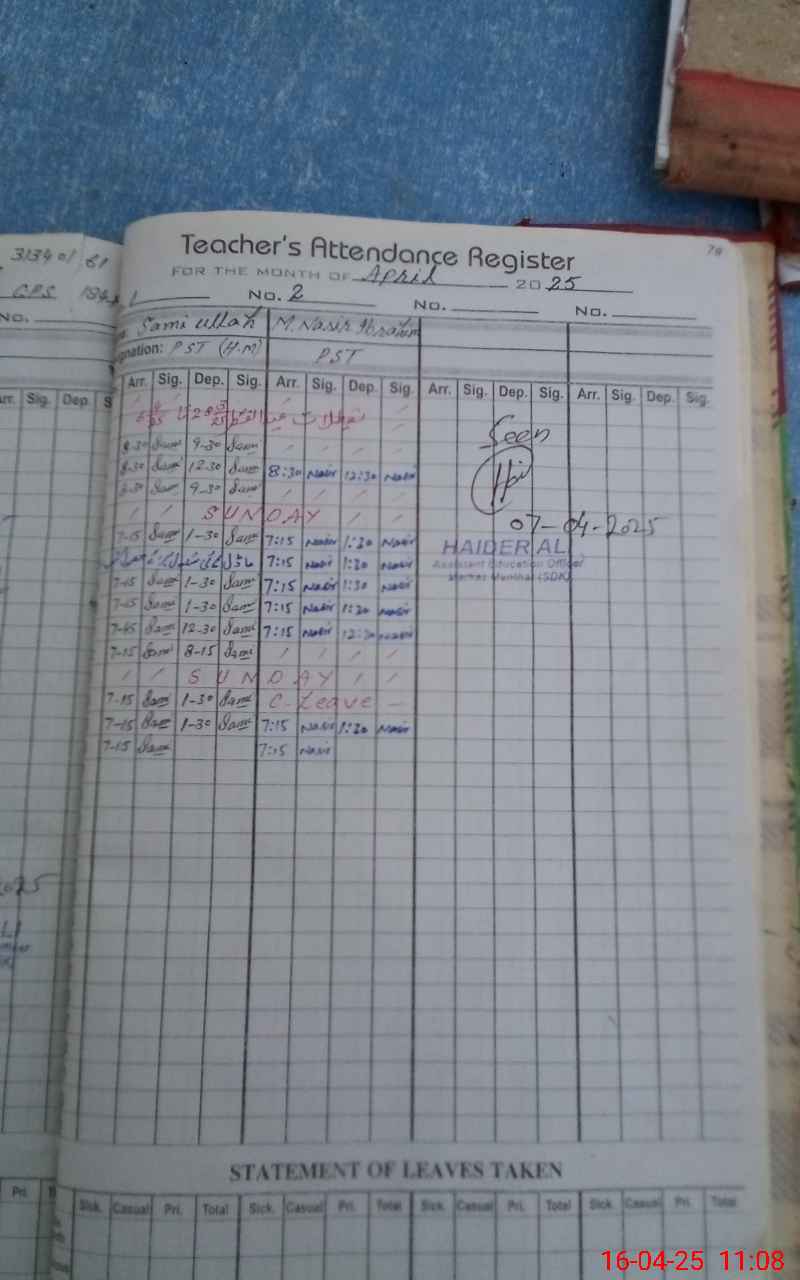 Teacher's Attendance Register
FOR THE MONTH OF April 2025
No. 2 No. No.
Sami ullah M. Nasir Ibrahim
PST (H.M) PST
Arr. Sig. Dep. Sig. Arr. Sig. Dep. Sig. Arr. Sig. Dep. Sig. Arr. Sig. Dep. Sig.
8-30 Sami 9-30 Sami
8-30 Sami 12-30 Sami 8:30 Nasir 12:30 Nasir
8-30 Sami 9-30 Sami
SUNDAY
7-15 Sami 1-30 Sami 7:15 Nasir 1:30 Nasir
7:15 Nasir 1:30 Nasir
7-15 Sami 1-30 Sami 7:15 Nasir 1:30 Nasir
7-15 Sami 1-30 Sami 7:15 Nasir 1:30 Nasir
7-15 Sami 12-30 Sami 7:15 Nasir 12:30 Nasir
7-15 Sami 8-15 Sami
SUNDAY
7-15 Sami 1-30 Sami C-Leave
7-15 Sami 1-30 Sami 7:15 Nasir 1:30 Nasir
7-15 Sami 7:15 Nasir
Seen
07-04-2025
HAIDER ALI
Assistant Education Officer
STATEMENT OF LEAVES TAKEN
Sick. Casual Pri. Total Sick. Casual Pri. Total Sick. Casual Pri. Total Sick. Casual Pri. Total
16-04-25 11:08